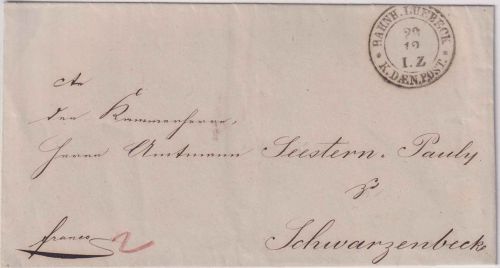 BAHNH. LUEBECK
29
12
I. Z
K. DÆN. POST.
An
den Kammerherrn,
Herrn Amtmann Seestern-Pauly
zu
Schwarzenbeck
franco 2